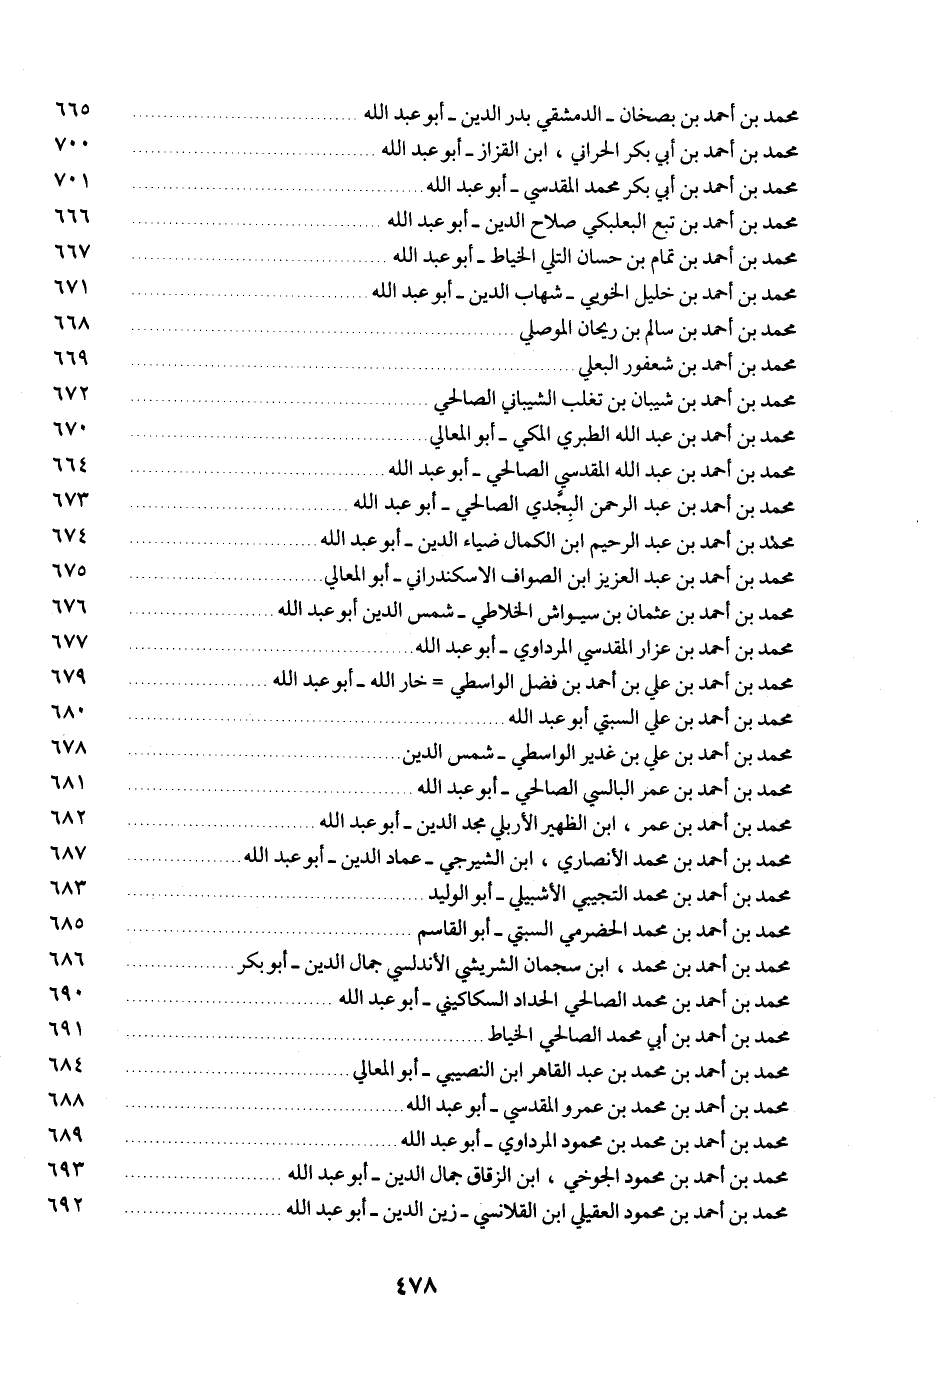 محمد بن أحمد بن بصخان ـ الدمشقي بدر الدين ـ أبو عبد الله ٦٦٥
محمد بن أحمد بن أبي بكر الحراني ، ابن القزاز ـ أبو عبد الله ٧٠٠
محمد بن أحمد بن أبي بكر محمد المقدسي ـ أبو عبد الله ٧٠١
محمد بن أحمد بن تبع البعلبكي صلاح الدين ـ أبو عبد الله ٦٦٦
محمد بن أحمد بن تمام بن حسان التلي الخياط ـ أبو عبد الله ٦٦٧
محمد بن أحمد بن خليل الخويي ـ شهاب الدين ـ أبو عبد الله ٦٧١
محمد بن أحمد بن سالم بن ريحان الموصلي ٦٦٨
محمد بن أحمد بن شعفور البعلي ٦٦٩
محمد بن أحمد بن شيبان بن تغلب الشيباني الصالحي ٦٧٢
محمد بن أحمد بن عبد الله الطبري المكي ـ أبو المعالي ٦٧٠
محمد بن أحمد بن عبد الله المقدسي الصالحي ـ أبو عبد الله ٦٦٤
محمد بن أحمد بن عبد الرحمن البِجَّدي الصالحي ـ أبو عبد الله ٦٧٣
محمد بن أحمد بن عبد الرحيم ابن الكمال ضياء الدين ـ أبو عبد الله ٦٧٤
محمد بن أحمد بن عبد العزيز ابن الصواف الاسكندراني ـ أبو المعالي ٦٧٥
محمد بن أحمد بن عثمان بن سيواش الخلاطي ـ شمس الدين أبو عبد الله ٦٧٦
محمد بن أحمد بن عزاز المقدسي المرداوي ـ أبو عبد الله ٦٧٧
محمد بن أحمد بن علي بن أحمد بن فضل الواسطي = خار الله ـ أبو عبد الله ٦٧٩
محمد بن أحمد بن علي السبتي أبو عبد الله ٦٨٠
محمد بن أحمد بن علي بن غدير الواسطي ـ شمس الدين ٦٧٨
محمد بن أحمد بن عمر البالسي الصالحي ـ أبو عبد الله ٦٨١
محمد بن أحمد بن عمر ، ابن الظهير الأربلي مجد الدين ـ أبو عبد الله ٦٨٢
محمد بن أحمد بن محمد الأنصاري ، ابن الشيرجي ـ عماد الدين ـ أبو عبد الله ٦٨٧
محمد بن أحمد بن محمد التجيبي الأشبيلي ـ أبو الوليد ٦٨٣
محمد بن أحمد بن محمد الحضرمي السبتي ـ أبو القاسم ٦٨٥
محمد بن أحمد بن محمد ، ابن سجمان الشريشي الأندلسي جمال الدين ـ أبو بكر ٦٨٦
محمد بن أحمد بن محمد الصالحي الحداد السكاكيني ـ أبو عبد الله ٦٩٠
محمد بن أحمد بن أبي محمد الصالحي الخياط ٦٩١
محمد بن أحمد بن محمد بن عبد القاهر ابن النصيبي ـ أبو المعالي ٦٨٤
محمد بن أحمد بن محمد بن عمرو المقدسي ـ أبو عبد الله ٦٨٨
محمد بن أحمد بن محمد بن محمود المرداوي ـ أبو عبد الله ٦٨٩
محمد بن أحمد بن محمود الجوخي ، ابن الزقاق جمال الدين ـ أبو عبد الله ٦٩٣
محمد بن أحمد بن محمود العقيلي ابن القلانسي ـ زين الدين ـ أبو عبد الله ٦٩٢
٤٧٨